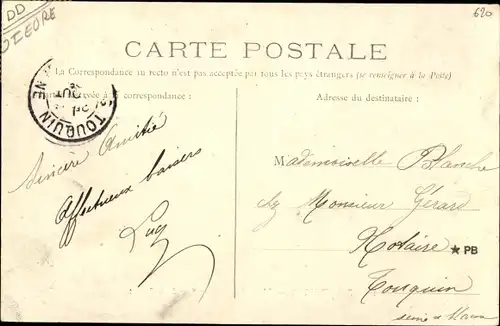 DD
620
CARTE POSTALE
La Correspondance au recto n'est pas acceptée par tous les pays étrangers (se renseigner à la Poste)
correspondance :
Adresse du destinataire :
TOUQUIN
Sincère Amitié
Affectueux baisers
Lucy
Mademoiselle Blanche
chez Monsieur Gérard
Notaire
★ PB
Touquin
Seine et Marne